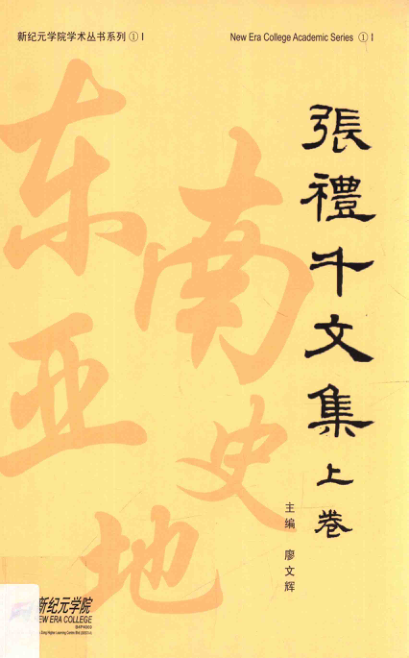 新纪元学院学术丛书系列①I
New Era College Academic Series ①I
張禮千文集 上卷
主编 廖文辉
东南亚史地
新纪元学院
NEW ERA COLLEGE